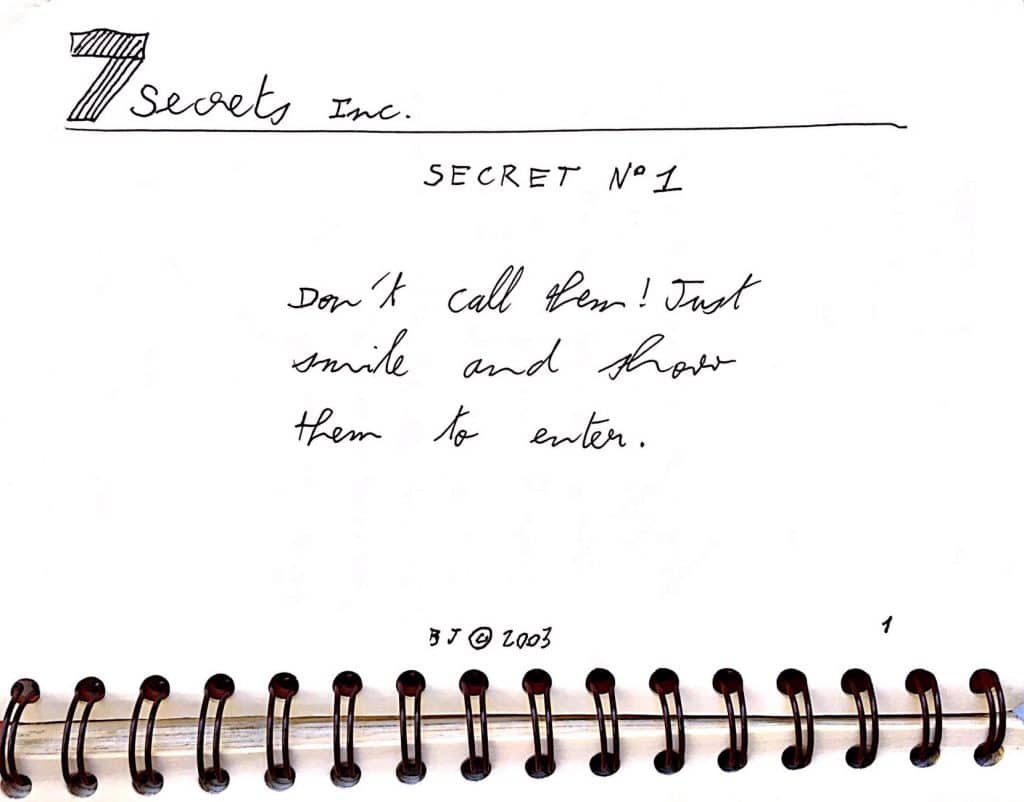 7 Secrets Inc.
SECRET Nº 1
Don't call them! Just
smile and show
them to enter.
BJ © 2003
1